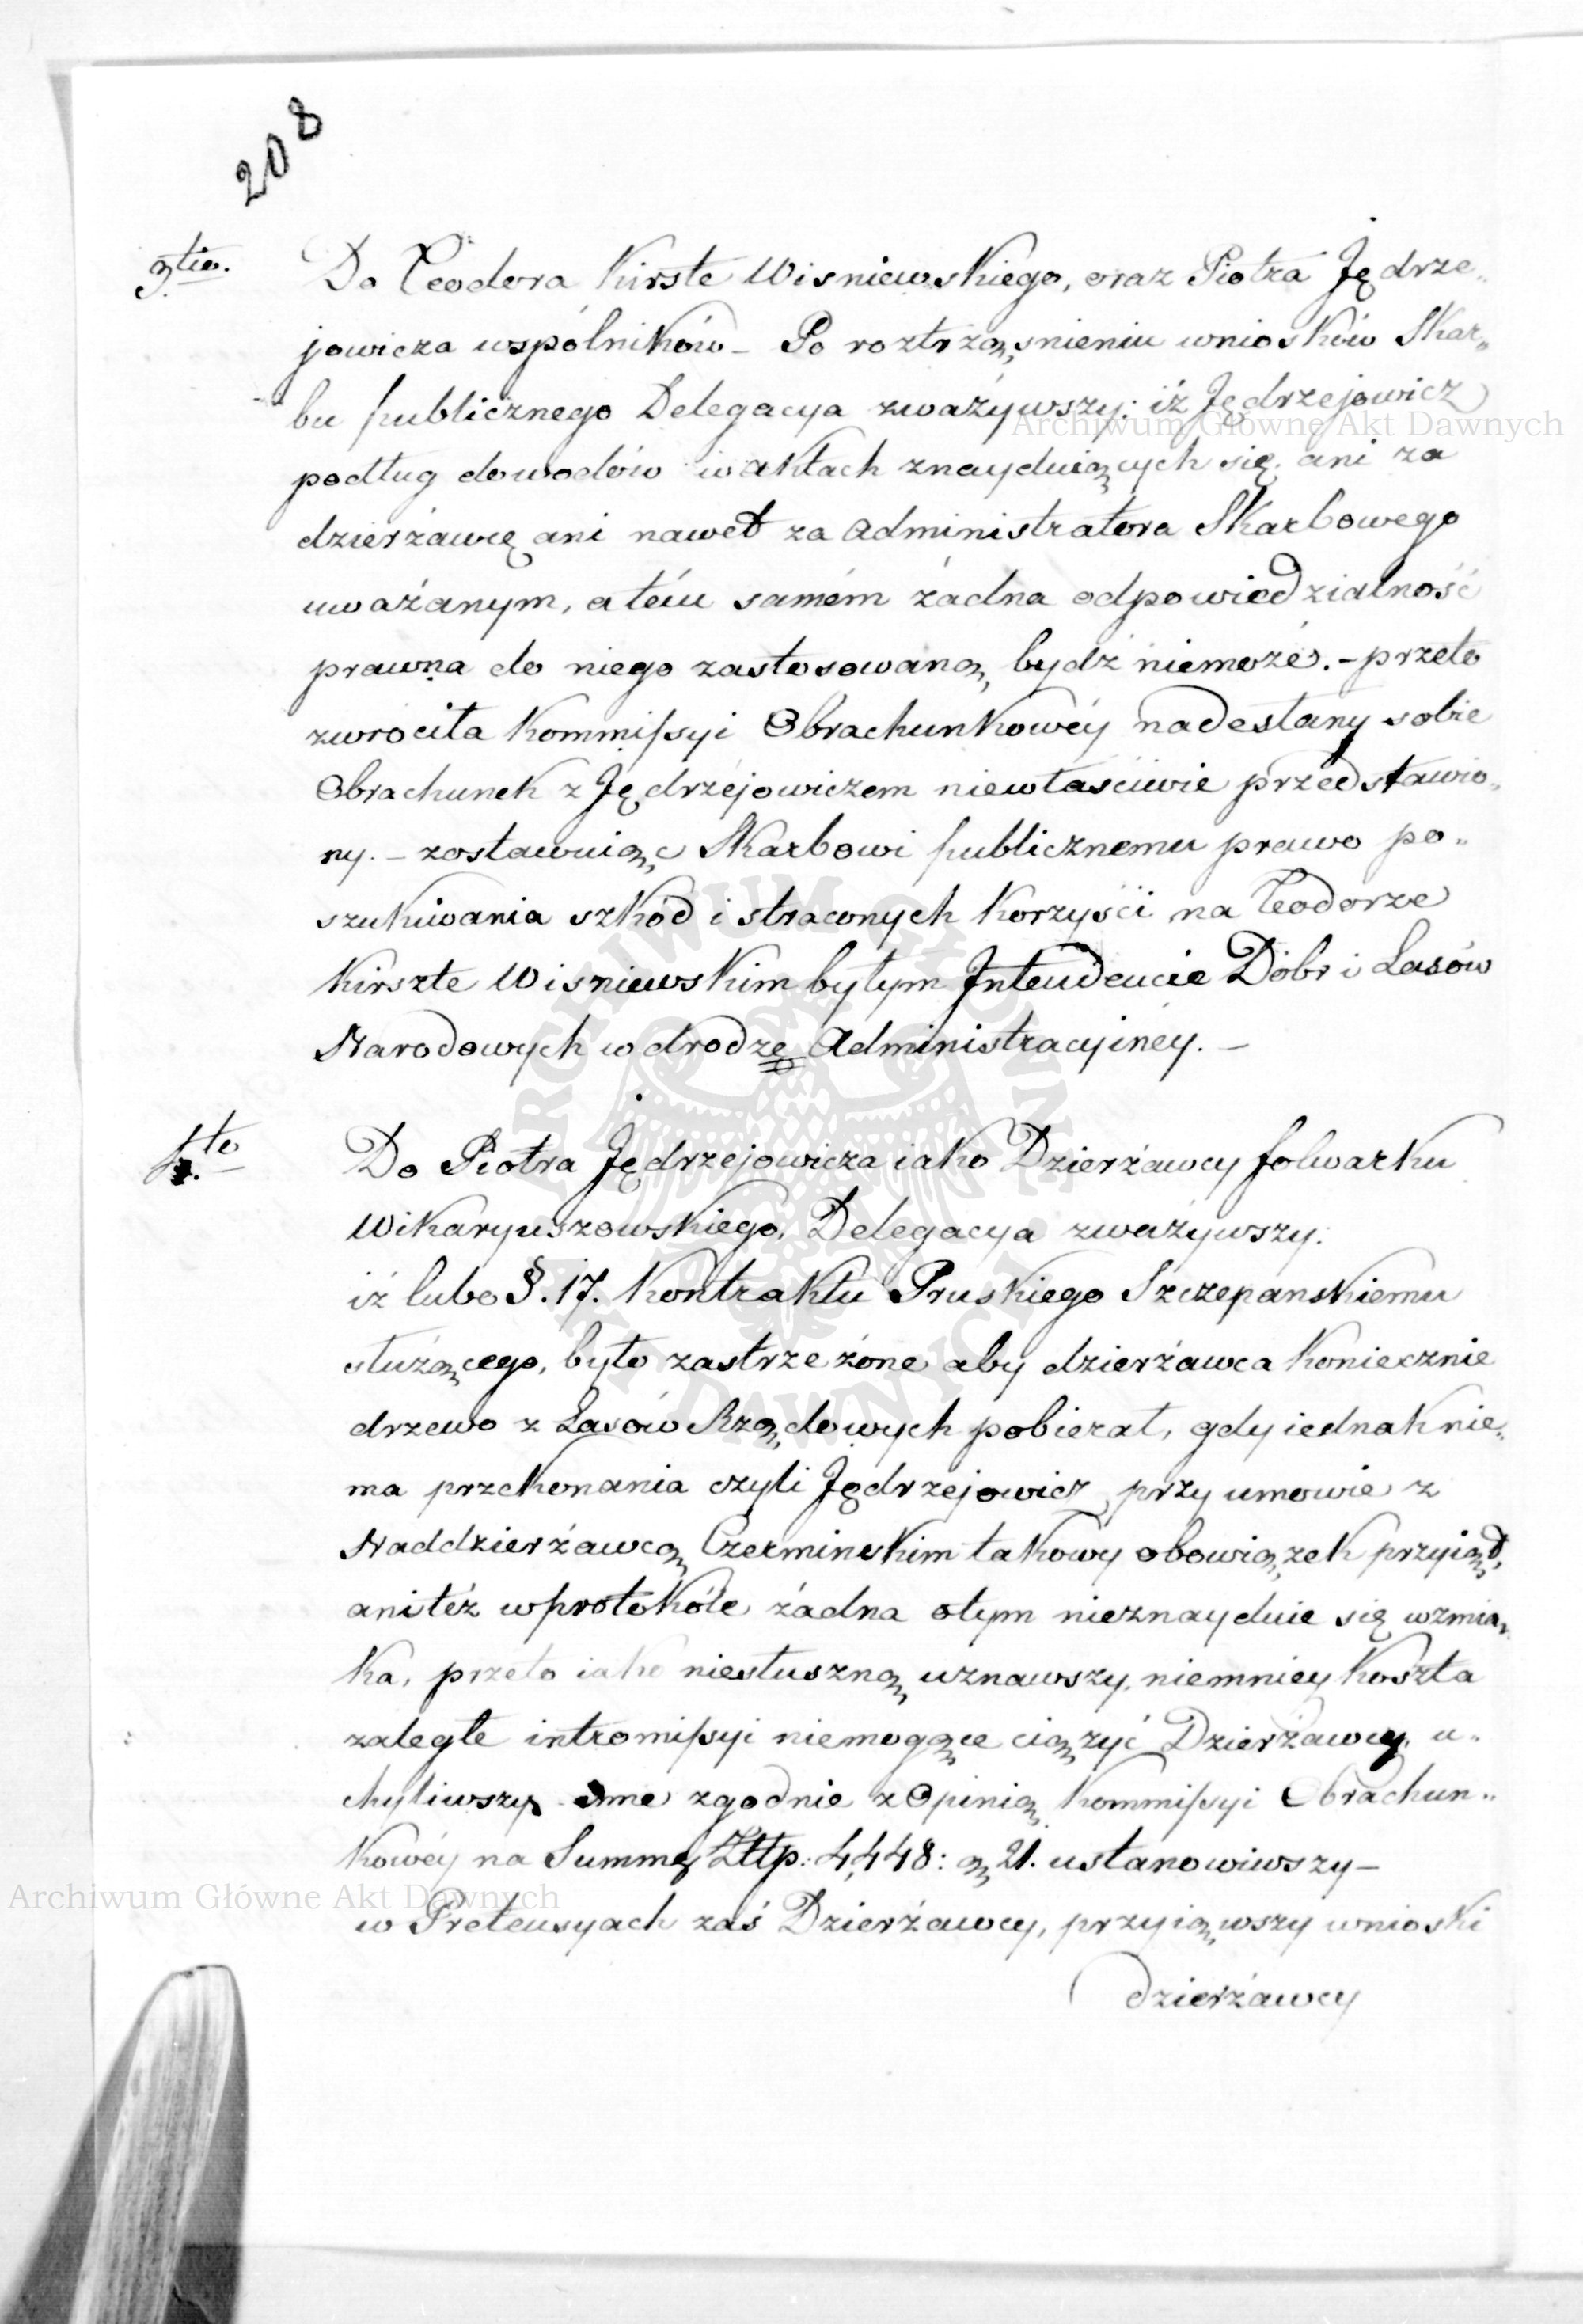 208
3tio. Do Teodora Kirste Wisniewskiego, oraz Piotra Jędrze„
jowicza wspólników – Po roztrząśnieniu wniosków Skar„
bu publicznego Delegacya zważywszy: iż Jędrzejowicz
podług dowodów w aktach znayduiących się, ani za
dzierżawcę ani nawet za Administratora Skarbowego
uważanym, a tém samém żadna odpowiedzialność
prawna do niego zastosowaną bydź niemoże. – przeto
zwróciła Kommissyi Obrachunkowéy nadesłany sobie
Obrachunek z Jędrzejowiczem niewłaściwie przedstawio„
ny. – zostawuiąc Skarbowi publicznemu prawo po„
szukiwania szkód i straconych korzyści na Teodorze
Kirszte Wisniewskim byłym Intendencie Dóbr i Lasów
Narodowych w drodze Administracyinéy. –
4to. Do Piotra Jędrzejowicza iako Dzierżawcy folwarku
Wikaryuszowskiego, Delegacya zważywszy:
iż lubo §. 17. Kontraktu Pruskiego Szczepanskiemu
służącego, było zastrzeżone aby dzierżawca koniecznie
drzewo z Lasów Rządowych pobierał, gdy iednak nie„
ma przekonania czyli Jędrzejowicz przy umowie z
Naddzierżawcą Czerminskim takowy obowiązek przyiął,
ani też w protokóle żadna o tym nieznayduie się wzmian„
ka, przeto iako niesłuszną uznawszy, niemniey koszta
zaległe intromissyi niemogące ciążyć Dzierżawcy, u„
chyliwszy zgodnie z Opinią Kommissyi Obrachun„
kowéy na Summę Złtp: 4,448: g 21. ustanowiwszy –
w Pretensyach zaś Dzierżawcy, przyiąwszy wnioski
dzierżawcy
Archiwum Główne Akt Dawnych
Archiwum Główne Akt Dawnych
ARCHIWUM GŁÓWNE AKT DAWNYCH